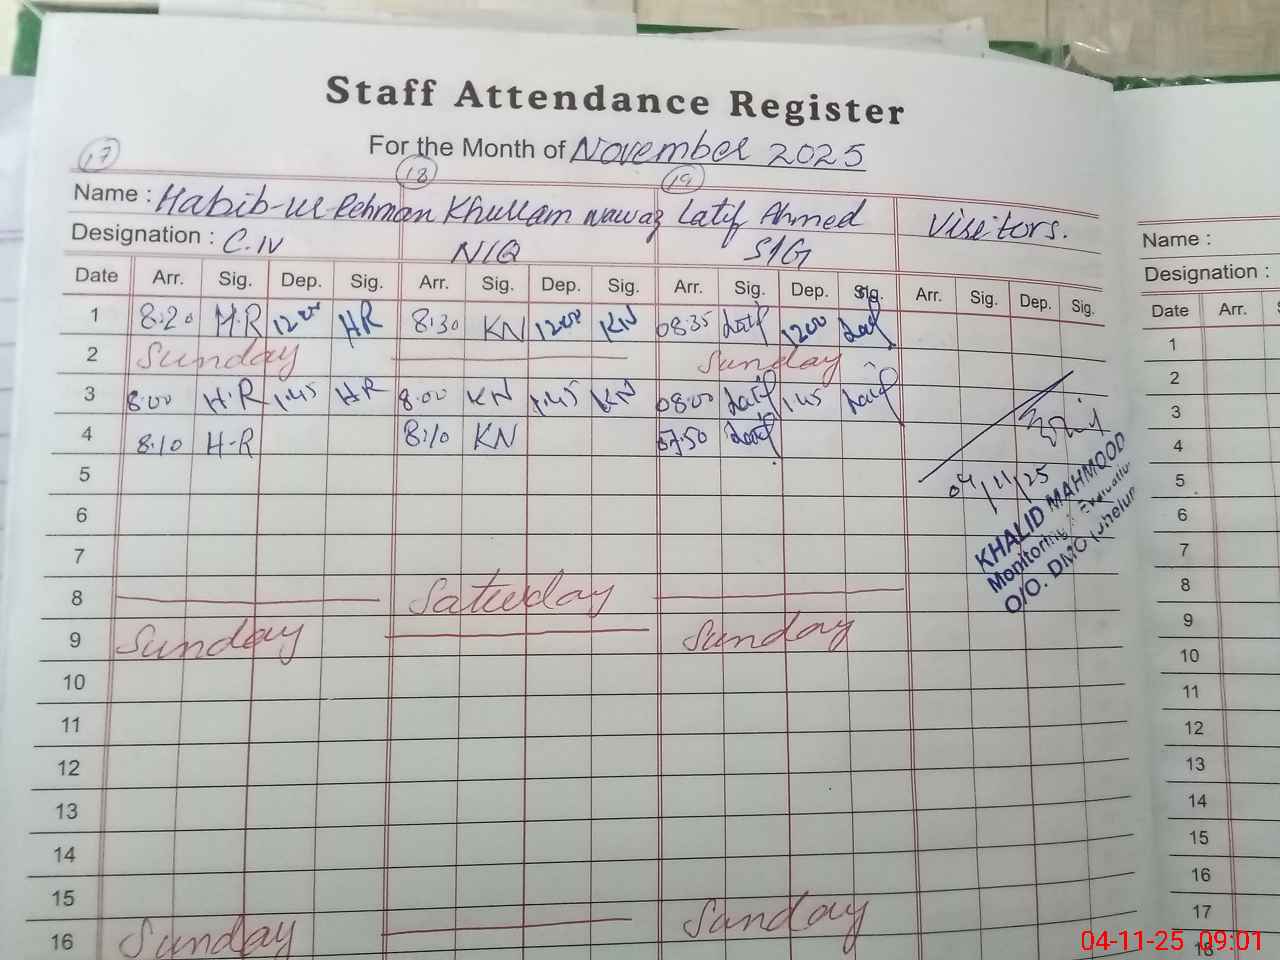 Staff Attendance Register
For the Month of November 2025
17 18 19
Name : Habib-ul Rehman Khullam Nawaz Latif Ahmed Visitors.
Designation : C.IV N/Q S/G
Date Arr. Sig. Dep. Sig. Arr. Sig. Dep. Sig. Arr. Sig. Dep. Sig. Arr. Sig. Dep. Sig.
1 8:20 H.R 1200 HR 8:30 KN 1200 KN 08:35 Latif 1200 Latif
2 Sunday Sunday
3 8:00 H.R 1:45 HR 8:00 KN 1:45 KN 08:00 Latif 1:45 Latif
4 8:10 H-R 8:10 KN 07:50 Latif
5
6
7
8 Saturday
9 Sunday Sunday
10
11
12
13
14
15
16 Sunday Sunday
04/11/25
KHALID MAHMOOD
Monitoring & Evaluation
O/O. DMO Jhelum
Name :
Designation :
Date Arr.
1
2
3
4
5
6
7
8
9
10
11
12
13
14
15
16
17
18
04-11-25 09:01